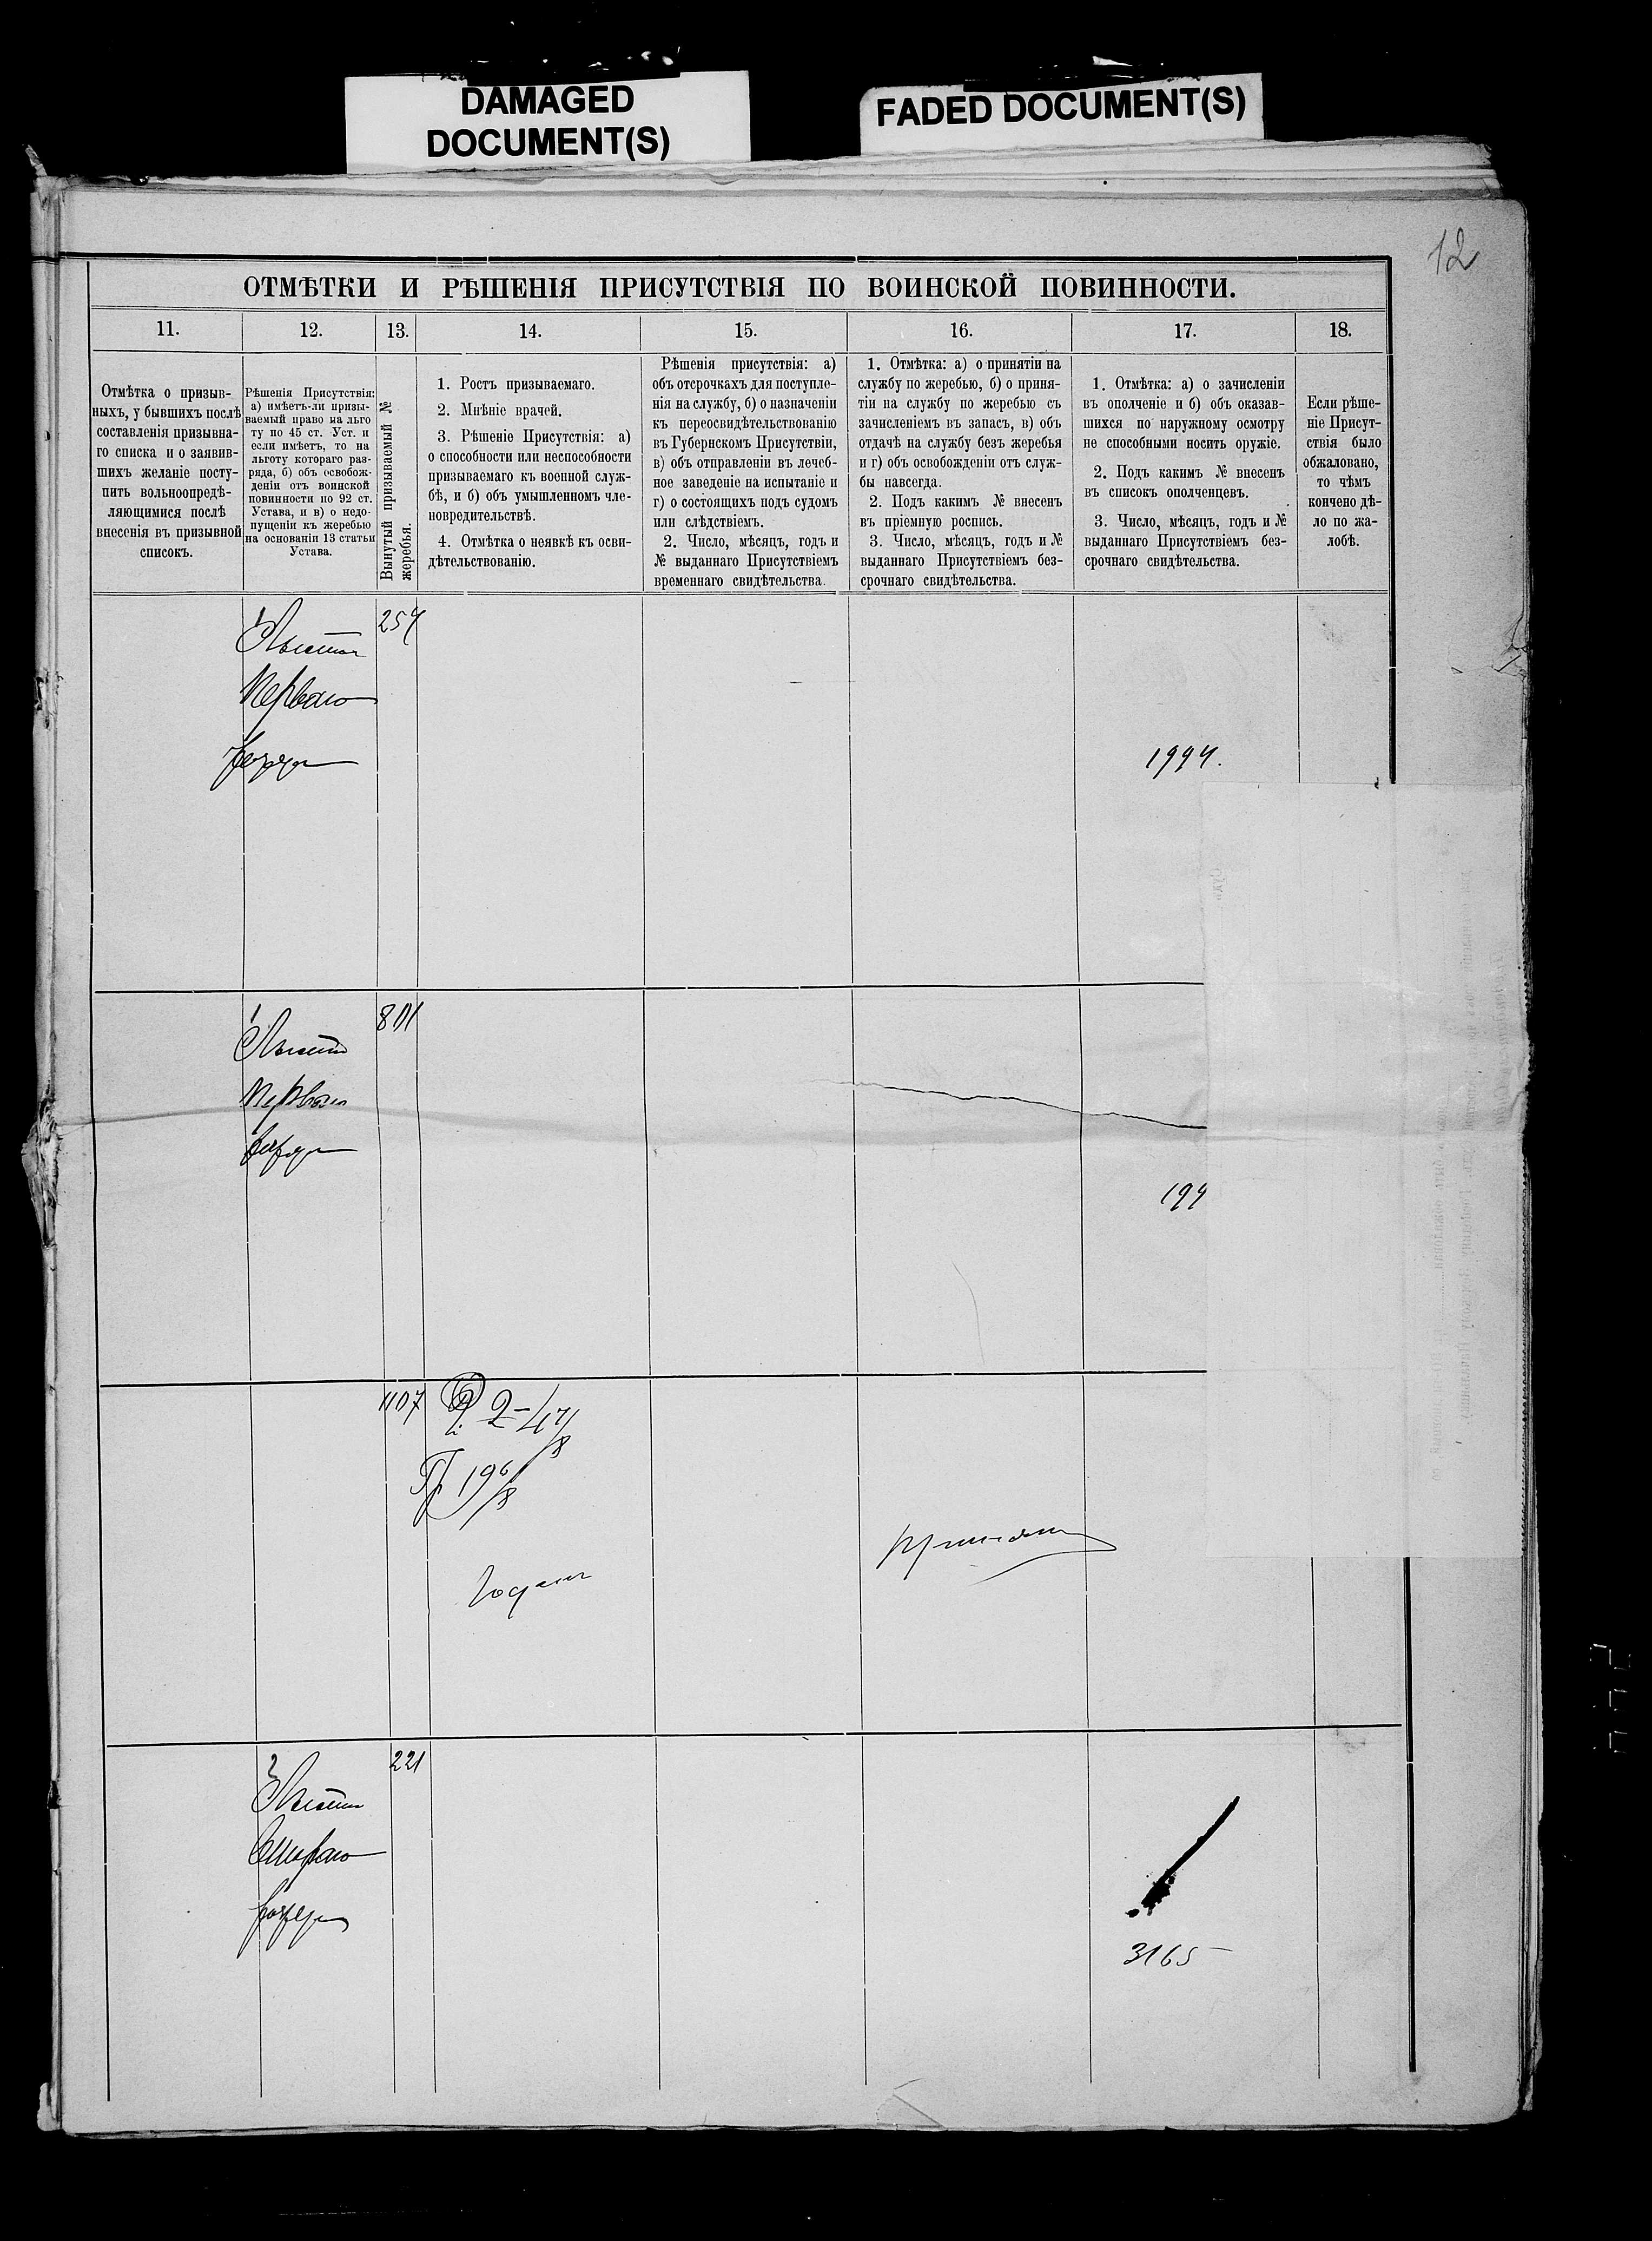 DAMAGED
DOCUMENT(S)
FADED DOCUMENT(S)
12
ОТМѢТКИ И РѢШЕНІЯ ПРИСУТСТВІЯ ПО ВОИНСКОЙ ПОВИННОСТИ.
11.
12.
13.
14.
15.
16.
17.
18.
Отмѣтка о призыв-
ныхъ, у бывшихъ послѣ
составленія призывна-
го списка и о заявив-
шихъ желаніе посту-
пить вольноопредѣ-
ляющимися послѣ
внесенія въ призывной
списокъ.
Рѣшенія Присутствія:
а) имѣетъ-ли призы-
ваемый право на льго
ту по 45 ст. Уст. и
если имѣетъ, то на
льготу котораго раз-
ряда, б) объ освобож-
деніи отъ воинской
повинности по 92 ст.
Устава, и в) о недо-
пущеніи къ жеребью
на основаніи 13 статьи
Устава.
Вынутый призываемый №
жеребья.
1. Ростъ призываемаго.
2. Мнѣніе врачей.
3. Рѣшеніе Присутствія: а)
о способности или неспособности
призываемаго къ военной служ-
бѣ, и б) объ умышленномъ чле-
новредительствѣ.
4. Отмѣтка о неявкѣ къ осви-
дѣтельствованію.
Рѣшенія присутствія: а)
объ отсрочкахъ для поступле-
нія на службу, б) о назначеніи
къ переосвидѣтельствованію
въ Губернскомъ Присутствіи,
в) объ отправленіи въ лечеб-
ное заведеніе на испытаніе и
г) о состоящихъ подъ судомъ
или слѣдствіемъ.
2. Число, мѣсяцъ, годъ и
№ выданнаго Присутствіемъ
временнаго свидѣтельства.
1. Отмѣтка: а) о принятіи на
службу по жеребью, б) о приня-
тіи на службу по жеребью съ
зачисленіемъ въ запасъ, в) объ
отдачѣ на службу безъ жеребья
и г) объ освобожденіи отъ служ-
бы навсегда.
2. Подъ какимъ № внесенъ
въ пріемную роспись.
3. Число, мѣсяцъ, годъ и №
выданнаго Присутствіемъ без-
срочнаго свидѣтельства.
1. Отмѣтка: а) о зачисленіи
въ ополченіе и б) объ оказав-
шихся по наружному осмотру
не способными носить оружіе.
2. Подъ какимъ № внесенъ
въ списокъ ополченцевъ.
3. Число, мѣсяцъ, годъ и №
выданнаго Присутствіемъ без-
срочнаго свидѣтельства.
Если рѣше-
ніе Присут-
ствія было
обжаловано,
то чѣмъ
кончено дѣ-
ло по жа-
лобѣ.
1
Льготы
Перваго
разряда
254
1994.
1
Льготы
Перваго
разряда
801
199
1107
Р. 2-4 7/8
Гр 19 6/8
Годенъ
Принятъ
2
Льготы
Втораго
разряда
221
3165